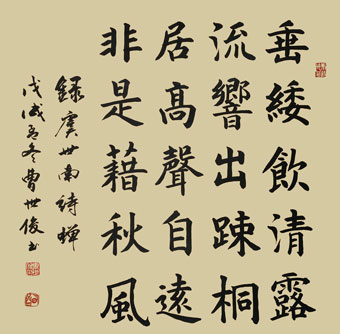 垂緌飲清露
流響出踈桐
居高聲自遠
非是藉秋風
錄虞世南詩蟬
戊戌孟冬曹世俊书